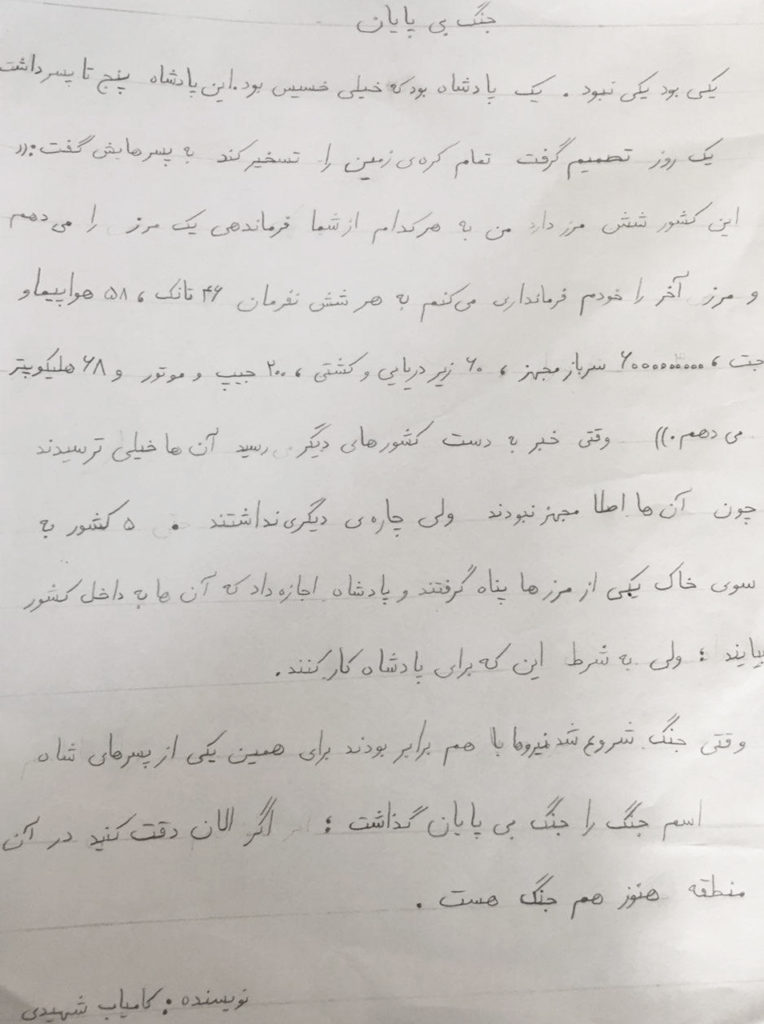 جنگ بی پایان
یکی بود یکی نبود . یک پادشاه بود که خیلی خسیس بود. این پادشاه پنج تا پسر داشت
یک روز تصمیم گرفت تمام کره‌ی زمین را تسخیر کند به پسرهایش گفت:((
این کشور شش مرز دارد من به هرکدام از شما فرماندهی یک مرز را می‌دهم
و مرز آخر را خودم فرمانداری می‌کنم به هر شش نفرمان ۴۶ تانک ، ۵۸ هواپیما و
جت ، سرباز مجهز ، ۶۰ زیردریایی و کشتی ، ۲۰۰ جیپ و موتور و ۶۸ هلیکوپتر
می دهم .)) وقتی خبر به دست کشورهای دیگر رسید آن ها خیلی ترسیدند
چون آن ها اصلا مجهز نبودند ولی چاره‌ی دیگری نداشتند . ۵ کشور به
سوی خاک یکی از مرزها پناه گرفتند و پادشاه اجازه داد که آن ها به داخل کشور
بیایند ؛ ولی به شرط این که برای پادشاه کار کنند .
وقتی جنگ شروع شد نیروها با هم برابر بودند برای همین یکی از پسرهای شاه
اسم جنگ را جنگ بی پایان گذاشت ؛ اگر الان دقت کنید در آن
منطقه هنوز هم جنگ هست .
نویسنده : کامیاب شهیدی